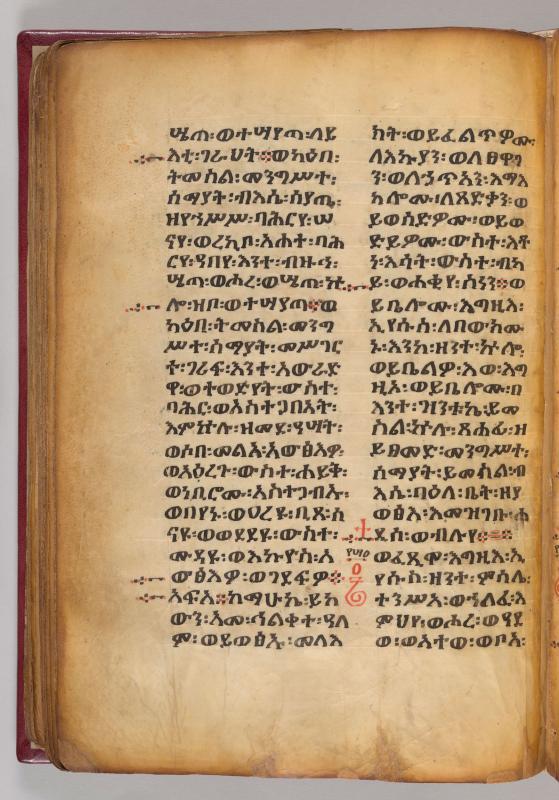 ሤጠ፡ወተሣየጣ፡ለይ
እቲ፡ገራህት፨ወካዕበ፡
ትመስል፡መንግሥተ፡
ሰማያት፡ብእሴ፡ሰያጢ፡
ዘየኀሥሥ፡ባሕርየ፡ሠ
ናየ፡ወረኪቦ፡አሐተ፡ባሕ
ርየ፡ዓበየ፡እንተ፡ብዙኅ፡
ሤጣ፡ወሖረ፡ወሤጠ፡ኵ
ሎ፡ዝቦ፡ወተሣያጣ፨ወ
ካዕበ፡ትመስል፡መንግ
ሥተ፡ሰማያት፡መሥገር
ተ፡ገሪፍ፡እንተ፡አውረድ
ዋ፡ወተወድየት፡ውስተ፡
ባሕር፡ወአስተጋበአት፡
እምኵሉ፡ዘመደ፡ዓሣት፡
ወሶበ፡መልአ፡አውፅእዎ፡
ወአዕረጉ፡ውስተ፡ሐይቅ፡
ወነቢሮሙ፡አስተጋብኡ፡
ወበየኑ፡ወኀረዩ፡ቢጸ፡ሰ
ናዩ፡ወወደይዩ፡ውስተ፡
ሙዳዩ፡ወእኩየሰ፡አ
ውፅእዎ፡ወገደፍዎ፨
አፍአ፨ከማሁኬ፡ይከ
ውን፡አመ፡ኅልቀተ፡ዓለ
ም፡ወይወፅኡ፡መላእ
ክት፡ወይፈልጥዎሙ፡
ለእኩያን፡ወለፀዋጋ
ን፡ወለኃጥአን፡እማእ
ከሎሙ፡ለጻድቃን፡ወ
ይወስድዎሙ፡ወይወ
ድይዎሙ፡ውስተ፡እቶ
ነ፡እሳት፡ውስተ፡ብካ
ይ፡ወሐቂየ፡ስነን፨ወ
ይቤሎሙ፡እግዚእ፡
ኢየሱስ፡ለበውክሙ
ኑ፡እንከ፡ዘንተ፡ኵሎ፡
ወይቤልዎ፡እወ፡እግ
ዚኦ፡ወይቤሎሙ፡በ
እንተ፡ዝንቱኬ፡ይመ
ስል፡ኵሉ፡ጸሐፊ፡ዘ
ይፀመድ፡መንግሥተ፡
ሰማያት፡ይመስል፡ብ
እሴ፡ባዕለ፡ቤት፡ዘያ
ወፅእ፡እመዝገቡ፡ሐ
ዲሰ፡ወብሉየ፨
ወፈጺሞ፡እግዚእ፡ኢ
የሱስ፡ዘንተ፡ምሳሌ፡
ተንሥአ፡ወኀለፈ፡እ
ምህየ፡ወሖረ፡ወዓደ
ወ፡ወአተወ፡ወቦአ፡